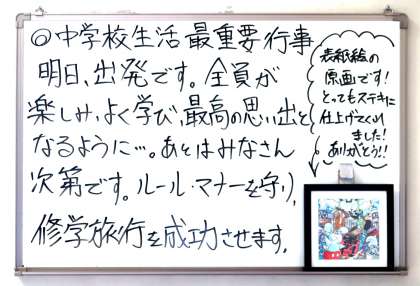 ◎中学校生活最重要行事
明日、出発です。全員が
楽しみ、よく学び、最高の思い出と
なるように…。あとはみなさん
次第です。ルール・マナーを守り、
修学旅行を成功させます。
表紙絵の
原画です!
とってもステキに
仕上げてくれ
ました!
ありがとう!!